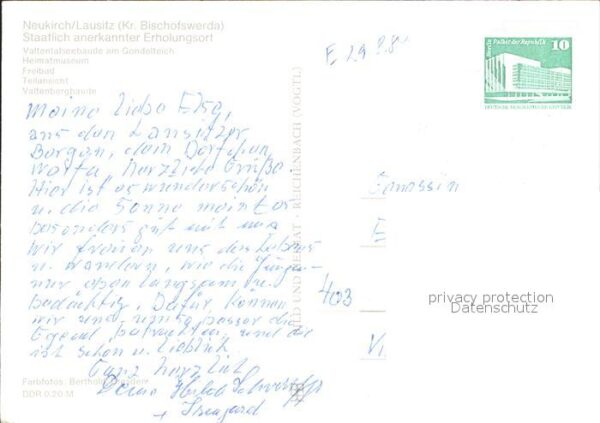 Neukirch/Lausitz (Kr. Bischofswerda)
Staatlich anerkannter Erholungsort
Valtentalseebaude am Gondelteich
Heimatmuseum
Freibad
Teilansicht
Valtenbergbaude
E 2.9.80
Berlin, Palast der Republik 10
DEUTSCHE DEMOKRATISCHE REPUBLIK
Meine liebe Elsa,
aus den Lausitzer
Bergen, dem Dörfchen
herzliche Grüße.
Hier ist es wunderschön
u. die Sonne meint es
besonders gut mit uns
Wir freuen uns des Lebens
u. wandern, wie die Jungen
nur eben langsam u.
bedächtig. Dafür können
wir und umso besser die
Gegend betrachten und die
ist schön u. lieblich
Ganz herzlich
Deine
+ Irmgard
Genossin
E
403
VI
BILD UND HEIMAT · REICHENBACH (VOGTL)
privacy protection
Datenschutz
Farbfotos: Berthold, Dresden
DDR 0,20 M